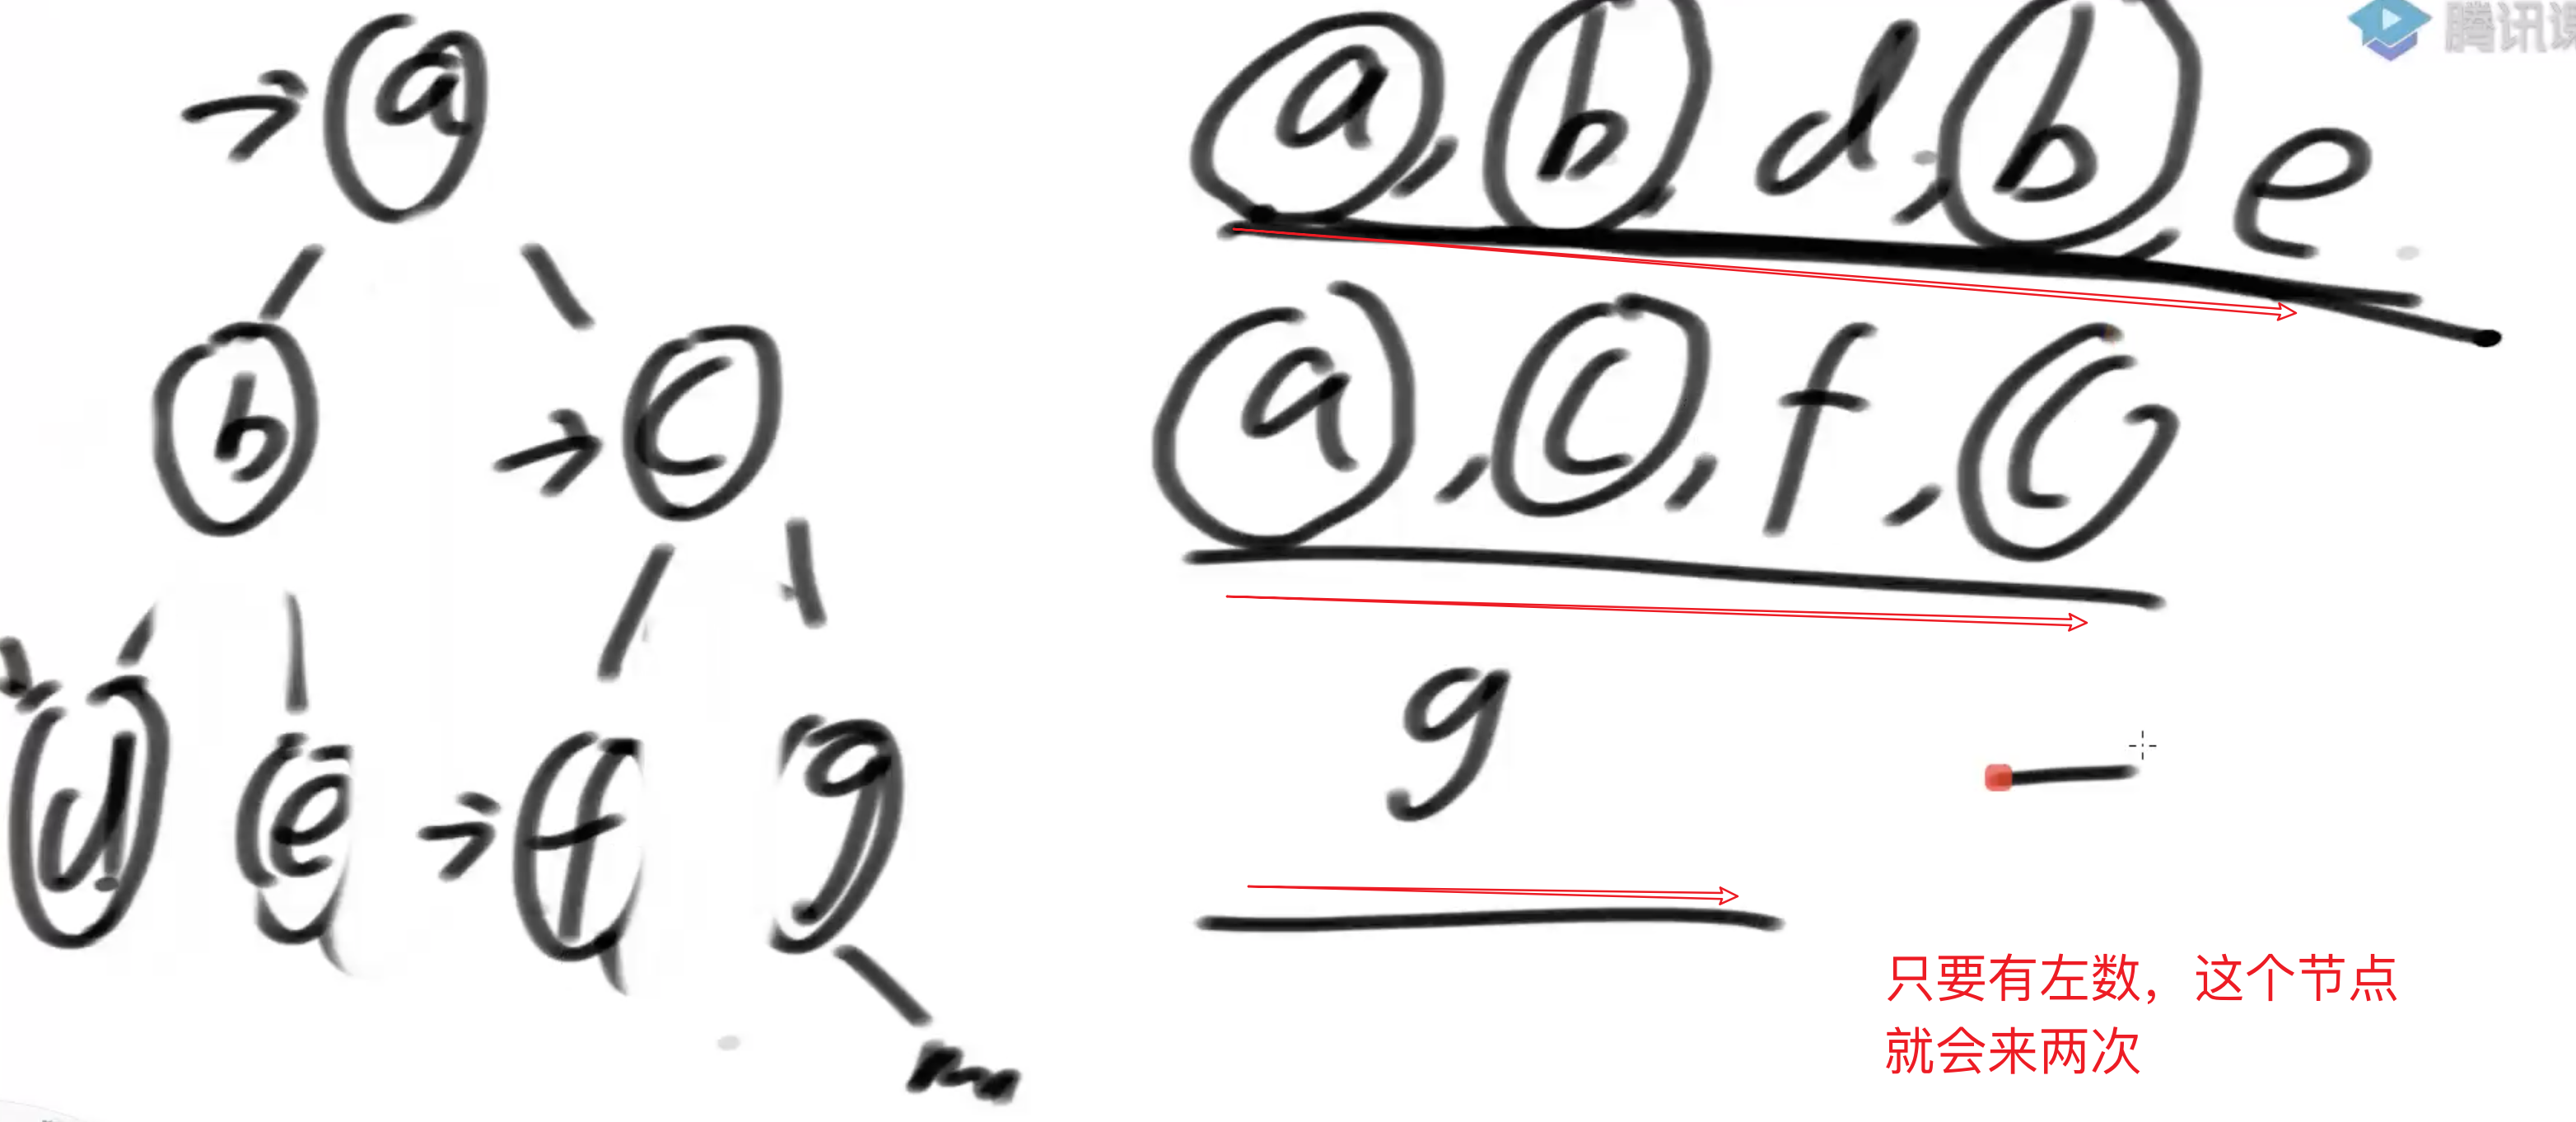 a
b c
d e f g
m
a, b, d, b, e
a, c, f, c
g
只要有左数，这个节点
就会来两次
腾讯课